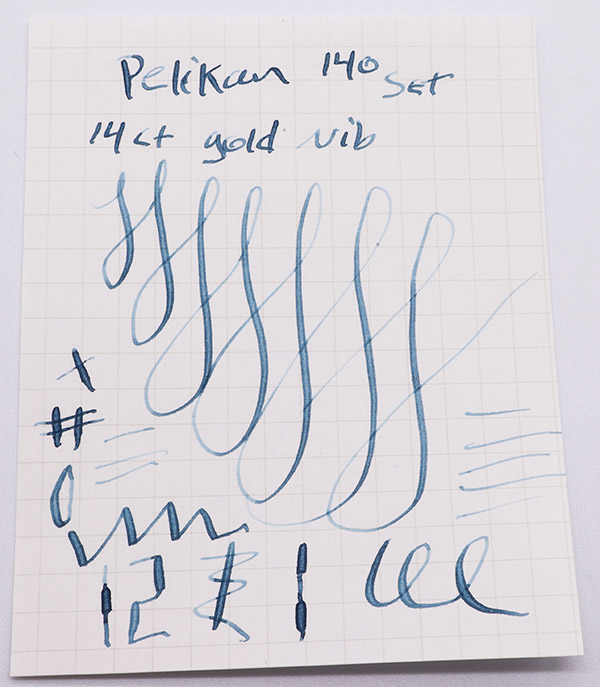 Pelikan 140 set
14ct gold nib
x
#
12